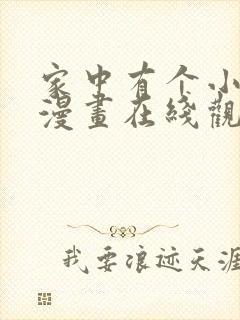 家中有个小
漫畫在綫觀
我要浪迹天涯